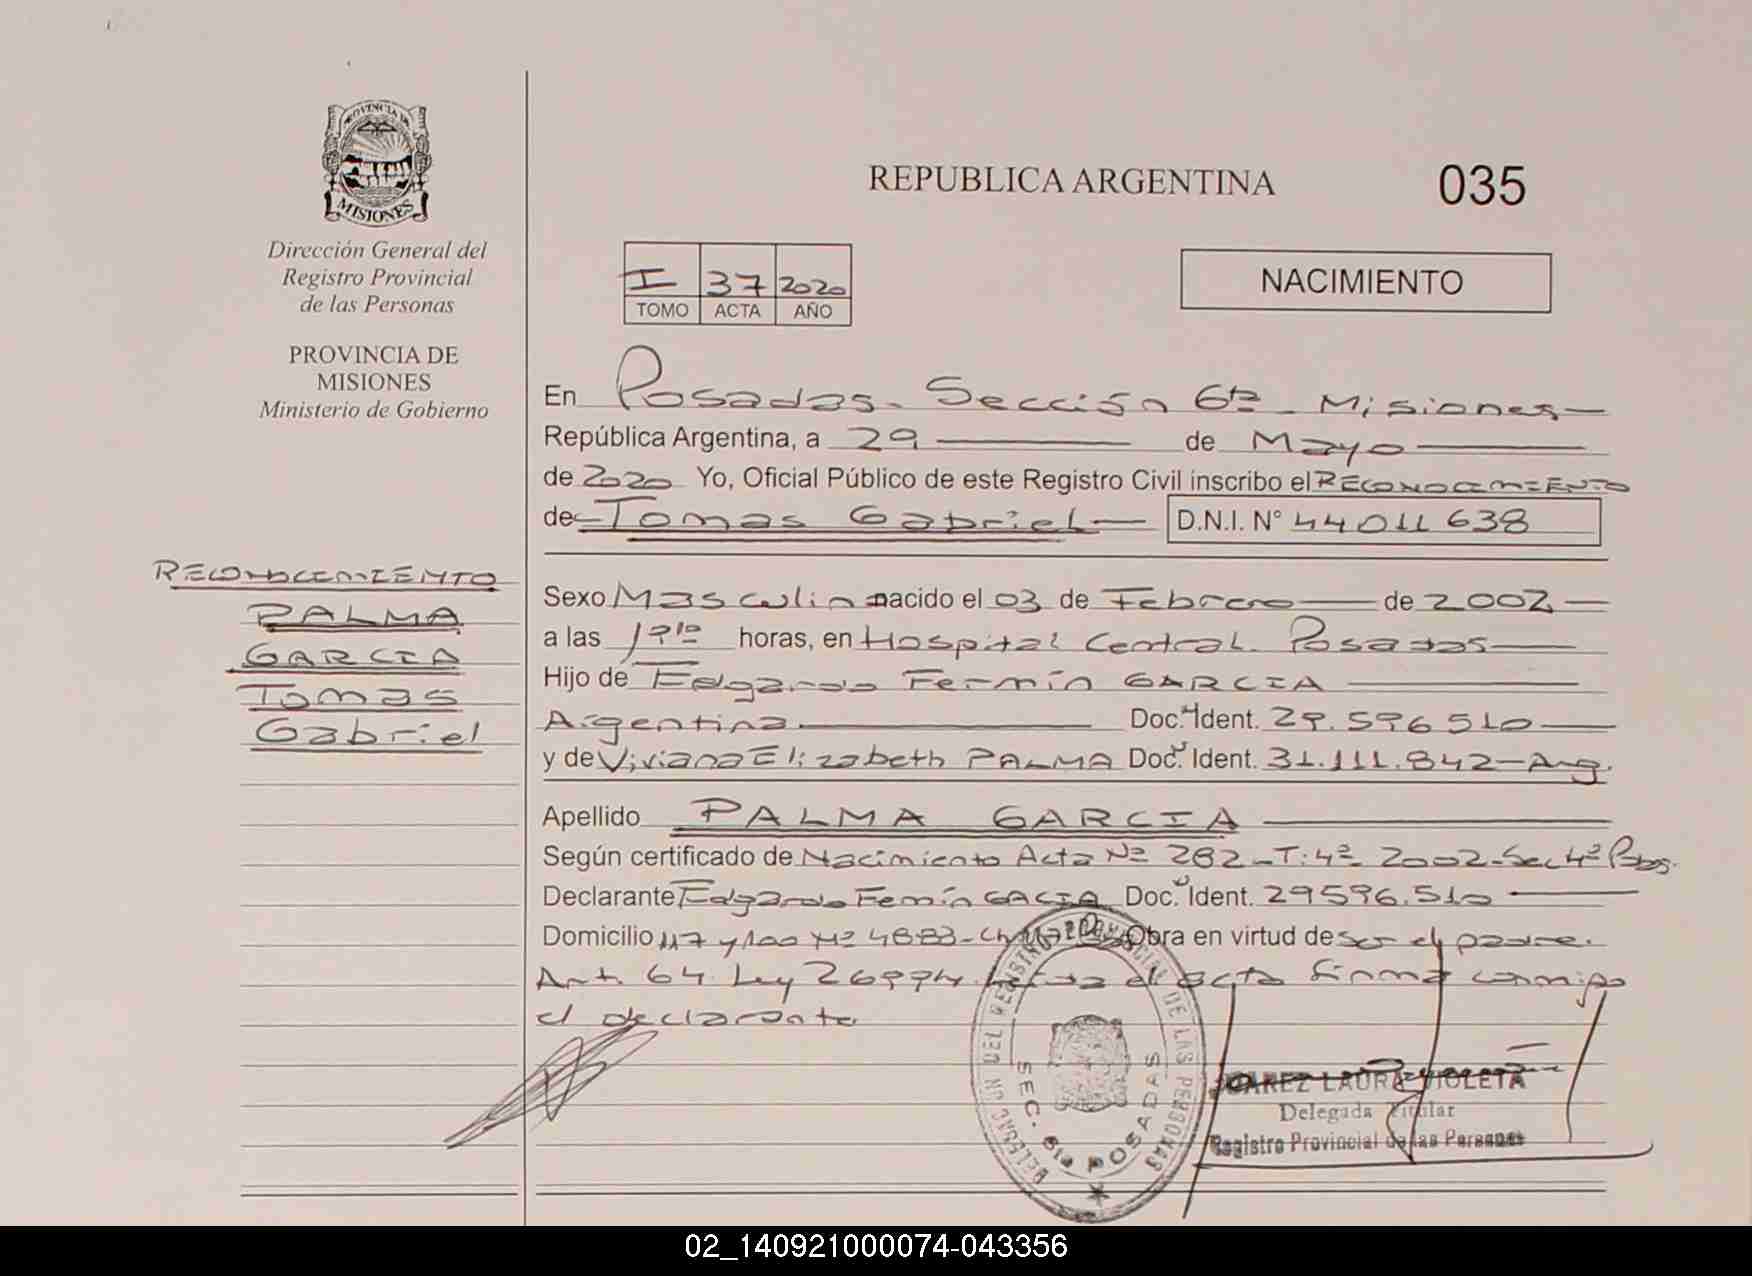 PROVINCIA DE
MISIONES
Dirección General del
Registro Provincial
de las Personas
PROVINCIA DE
MISIONES
Ministerio de Gobierno
RECONOCIMIENTO
PALMA
GARCIA
Tomas
Gabriel
REPUBLICA ARGENTINA 035
I 37 2020
TOMO ACTA AÑO
NACIMIENTO
En Posadas - Sección 6ta - Misiones
República Argentina, a 29 de Mayo
de 2020 Yo, Oficial Público de este Registro Civil inscribo el RECONOCIMIENTO
de Tomas Gabriel D.N.I. N° 44011638
Sexo Masculino nacido el 03 de Febrero de 2002
a las horas, en Hospital Central. Posadas
Hijo de Edgardo Fermín GARCIA
Argentina. Doc. Ident. 29.596.510
y de Viviana Elizabeth PALMA Doc. Ident. 31.111.842-Arg.
Apellido PALMA GARCIA
Según certificado de Nacimiento Acta Nº 282-T:4º-2002-Sec 4º Pdas.
Declarante Edgardo Fermín GACIA Doc. Ident. 29596.510
Domicilio 117 y 100 Nº 4883-Ch Obra en virtud de ser el padre.
Art. 64 Ley 26994. el acta firma conmigo
el declarante
DELEGACION DEL REGISTRO PROVINCIAL DE LAS PERSONAS
SEC. 6ta POSADAS
SUAREZ LAURA VIOLETA
Delegada Titular
Registro Provincial de las Personas
02_140921000074-043356